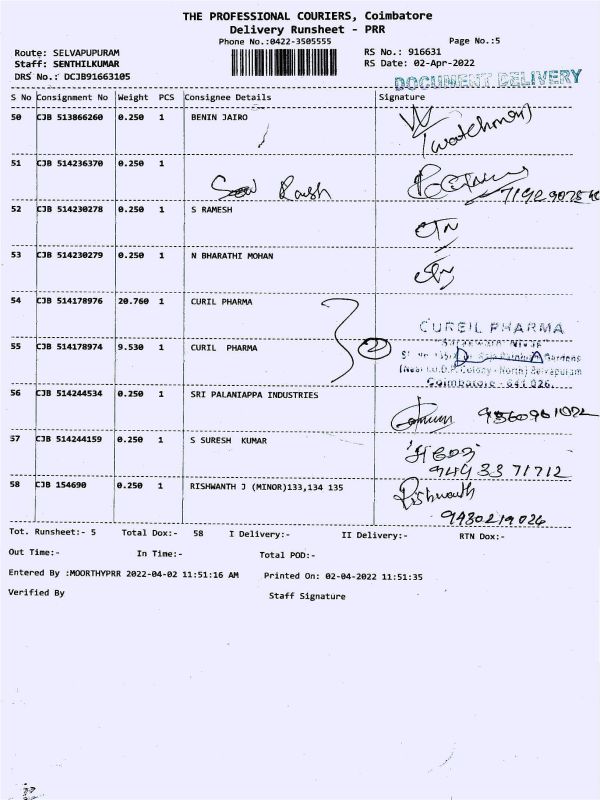 THE PROFESSIONAL COURIERS, Coimbatore
Delivery Runsheet - PRR
Phone No.:0422-3505555
Page No.:5
Route: SELVAPUPURAM
RS No.: 916631
Staff: SENTHILKUMAR
RS Date: 02-Apr-2022
DRS No.: DCJB91663105
DOCUMENT DELIVERY
S No Consignment No Weight PCS Consignee Details Signature
50 CJB 513866260 0.250 1 BENIN JAIRO
(watchman)
51 CJB 514236370 0.250 1
52 CJB 514230278 0.250 1 S RAMESH
53 CJB 514230279 0.250 1 N BHARATHI MOHAN
54 CJB 514178976 20.760 1 CURIL PHARMA
CUREIL PHARMA
55 CJB 514178974 9.530 1 CURIL PHARMA
2
Gardens
(Near I.U.D.P. Colony - North) Selvapuram
Coimbatore - 641 026.
56 CJB 514244534 0.250 1 SRI PALANIAPPA INDUSTRIES
57 CJB 514244159 0.250 1 S SURESH KUMAR
9494 33 71712
58 CJB 154690 0.250 1 RISHWANTH J (MINOR)133,134 135
Rishwanth
9430219026
Tot. Runsheet:- 5 Total Dox:- 58 I Delivery:- II Delivery:- RTN Dox:-
Out Time:- In Time:- Total POD:-
Entered By :MOORTHYPRR 2022-04-02 11:51:16 AM Printed On: 02-04-2022 11:51:35
Verified By Staff Signature